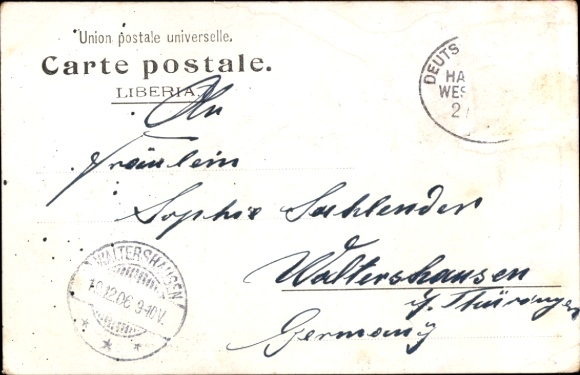 Union postale universelle.
Carte postale.
LIBERIA.
An
Fräulein
Sophie Sahlender
Waltershausen
i/ Thüringen
Germany
DEUTS
HA
WES
2
WALTERSHAUSEN
12.06 9-10V.